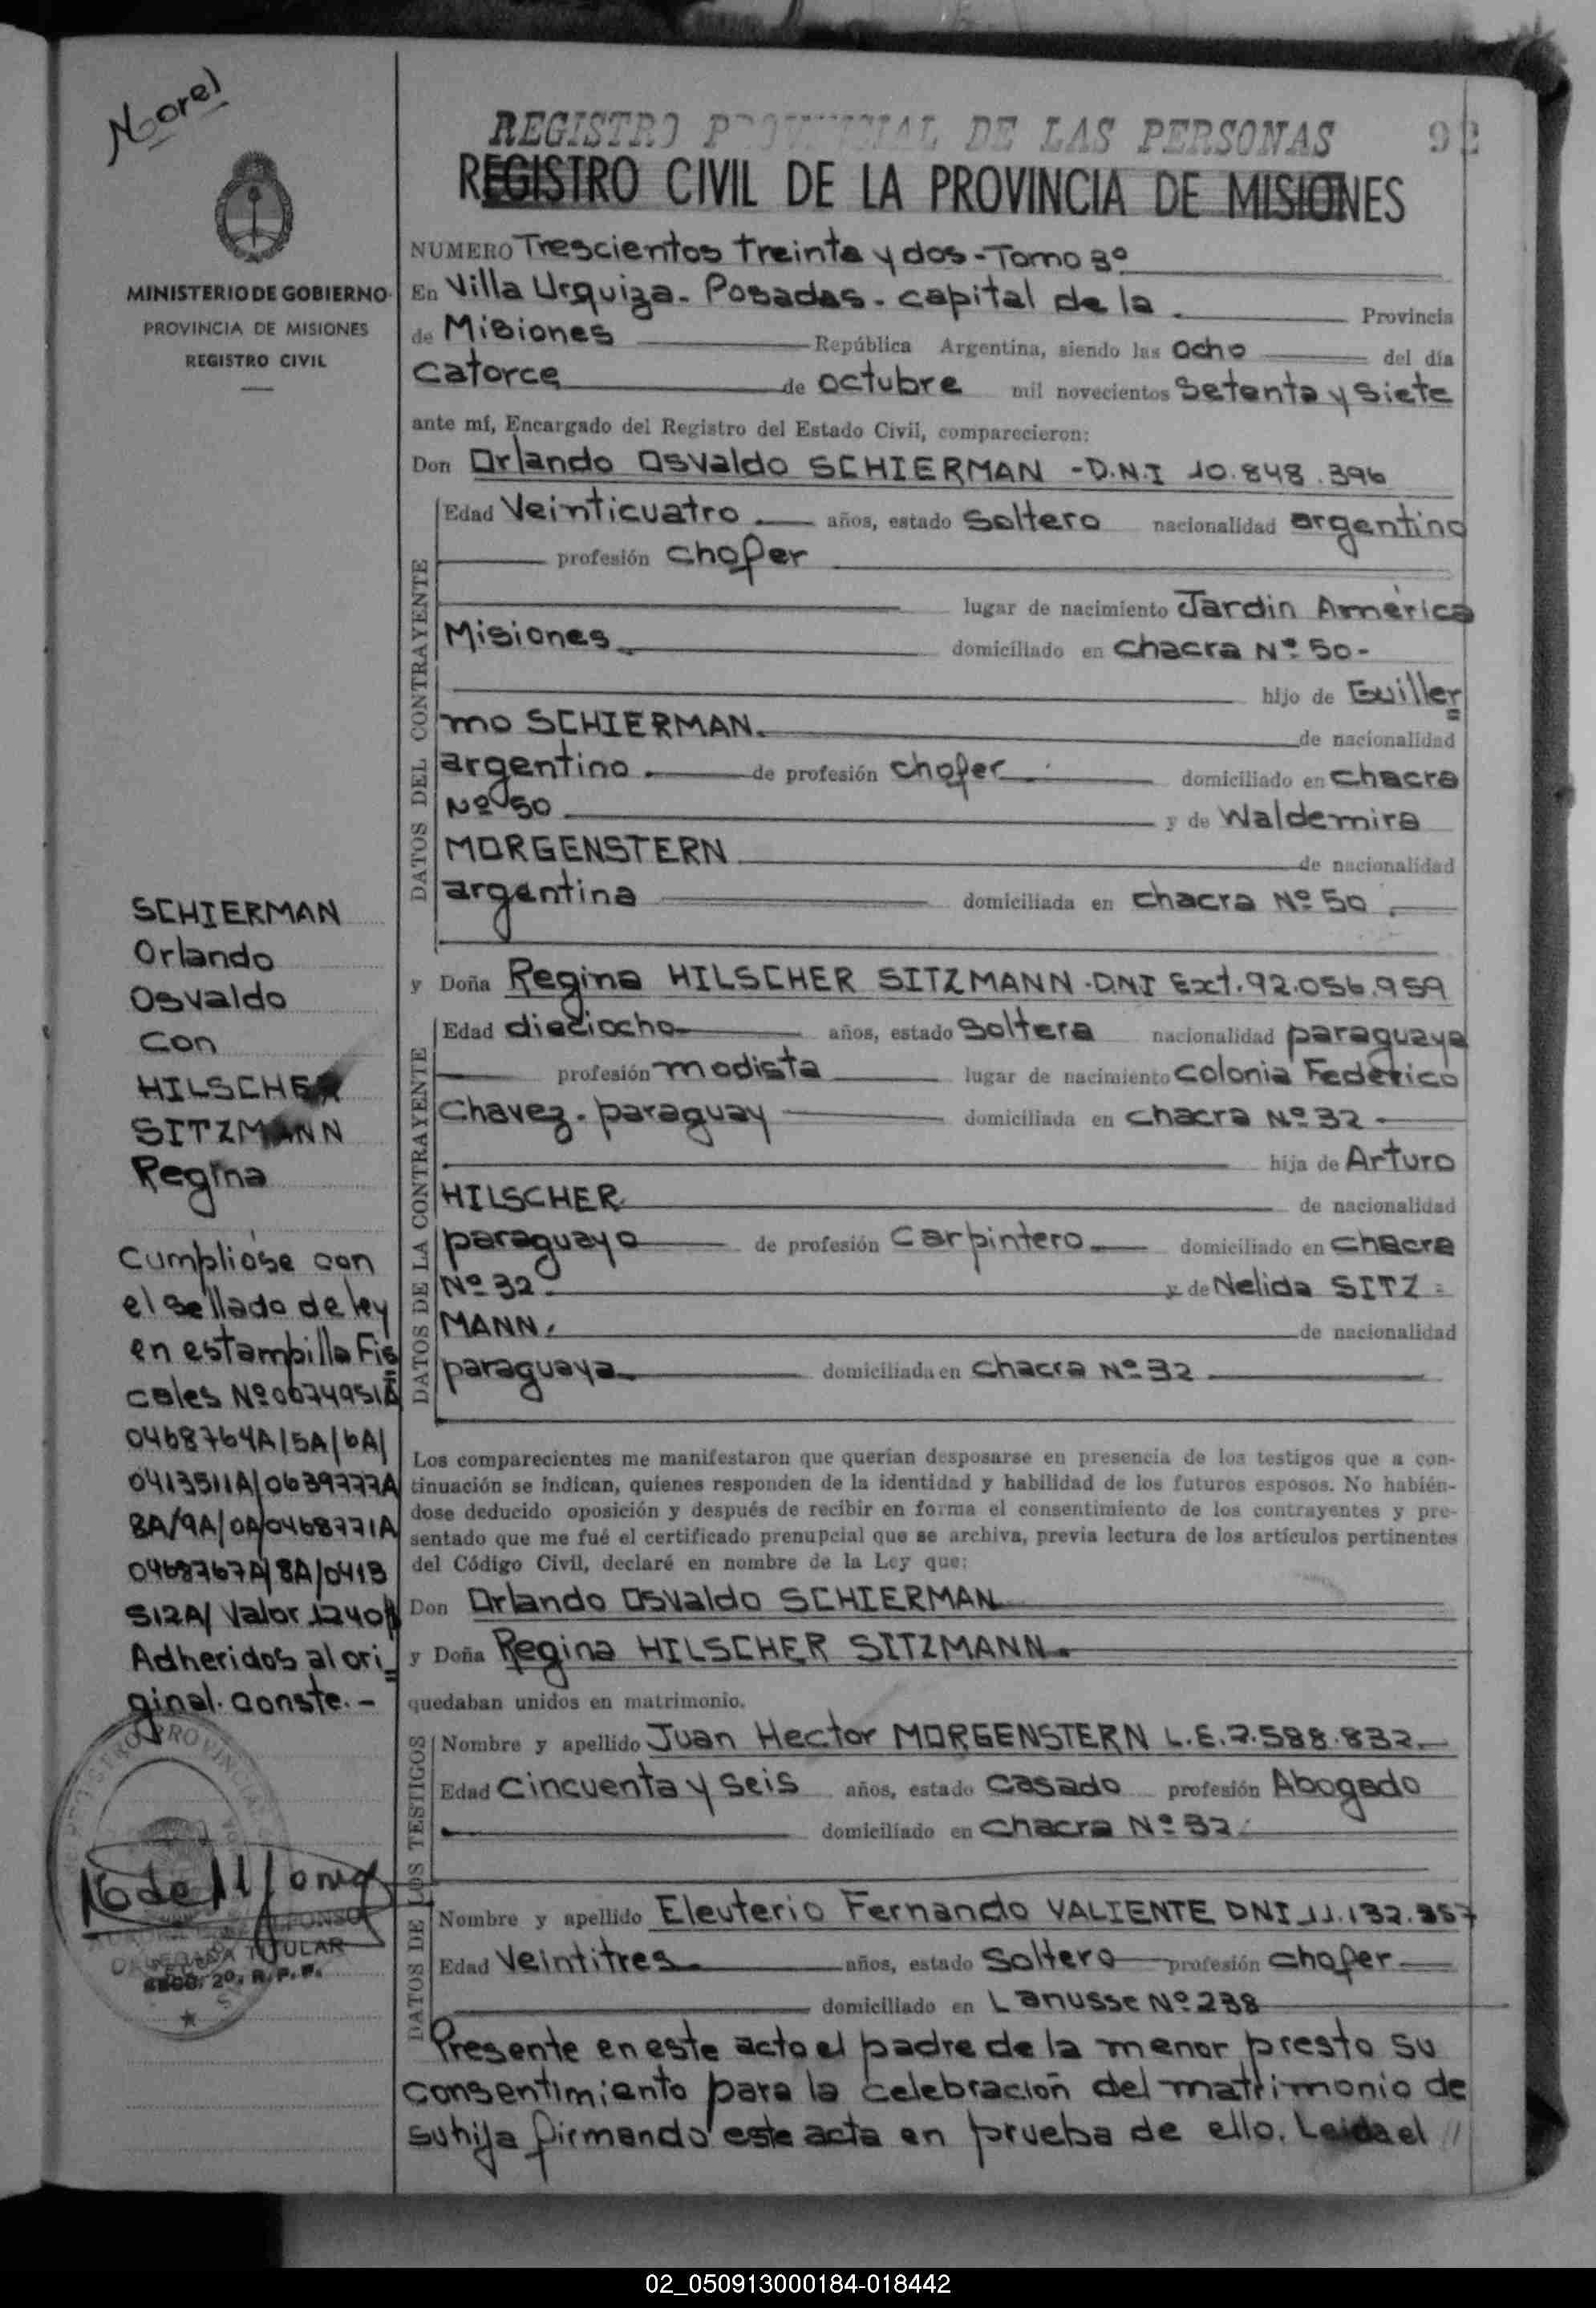 Morel
REGISTRO PROVINCIAL DE LAS PERSONAS 92
REGISTRO CIVIL DE LA PROVINCIA DE MISIONES
MINISTERIO DE GOBIERNO
PROVINCIA DE MISIONES
REGISTRO CIVIL
NUMERO Trescientos treinta y dos - Tomo 3º
En Villa Urquiza - Posadas - capital de la Provincia
de Misiones República Argentina, siendo las ocho del día
catorce de octubre mil novecientos setenta y siete
ante mí, Encargado del Registro del Estado Civil, comparecieron:
Don Orlando Osvaldo SCHIERMAN - D.N.I 10.848.396
DATOS DEL CONTRAYENTE
Edad Veinticuatro años, estado soltero nacionalidad argentino
profesión chofer
lugar de nacimiento Jardin América
Misiones domiciliado en chacra Nº 50 -
hijo de Guiller
mo SCHIERMAN. de nacionalidad
argentino. de profesión chofer domiciliado en chacra
Nº 50 y de Waldemira
MORGENSTERN de nacionalidad
argentina domiciliada en chacra Nº 50.
y Doña Regina HILSCHER SITZMANN - DNI Ext. 92.056.959
DATOS DE LA CONTRAYENTE
Edad dieciocho años, estado Soltera nacionalidad paraguaya
profesión modista lugar de nacimiento Colonia Federico
Chavez - paraguay domiciliada en chacra Nº 32 -
hija de Arturo
HILSCHER de nacionalidad
paraguayo de profesión Carpintero domiciliado en chacra
Nº 32 y de Nelida SITZ=
MANN. de nacionalidad
paraguaya domiciliada en chacra Nº 32
Los comparecientes me manifestaron que querían desposarse en presencia de los testigos que a con-
tinuación se indican, quienes responden de la identidad y habilidad de los futuros esposos. No habién-
dose deducido oposición y después de recibir en forma el consentimiento de los contrayentes y pre-
sentado que me fué el certificado prenupcial que se archiva, previa lectura de los artículos pertinentes
del Código Civil, declaré en nombre de la Ley que:
Don Orlando Osvaldo SCHIERMAN
y Doña Regina HILSCHER SITZMANN.
quedaban unidos en matrimonio.
DATOS DE LOS TESTIGOS
Nombre y apellido Juan Hector MORGENSTERN L.E. 7.588.832
Edad Cincuenta y seis años, estado casado profesión Abogado
domiciliado en chacra Nº 32
Nombre y apellido Eleuterio Fernando VALIENTE DNI 11.132.357
Edad Veintitres años, estado Soltero profesión chofer
domiciliado en Lanusse Nº 238
Presente en este acto el padre de la menor presto su
consentimiento para la celebración del matrimonio de
su hija firmando este acta en prueba de ello. Leida el //
SCHIERMAN
Orlando
Osvaldo
Con
HILSCHER
SITZMANN
Regina
Cumpliose con
el sellado de ley
en estampilla Fis
cales Nº 0074951A
0468764A/5A/6A/
0413511A/0639777A
8A/9A/0A/0468771A
0468767A/8A/0413
512A/ Valor 1240
Adheridos al ori=
ginal. conste. -
REGISTRO PROVINCIAL
TITULAR
SECC. 2º. R. P. P.
02_050913000184-018442